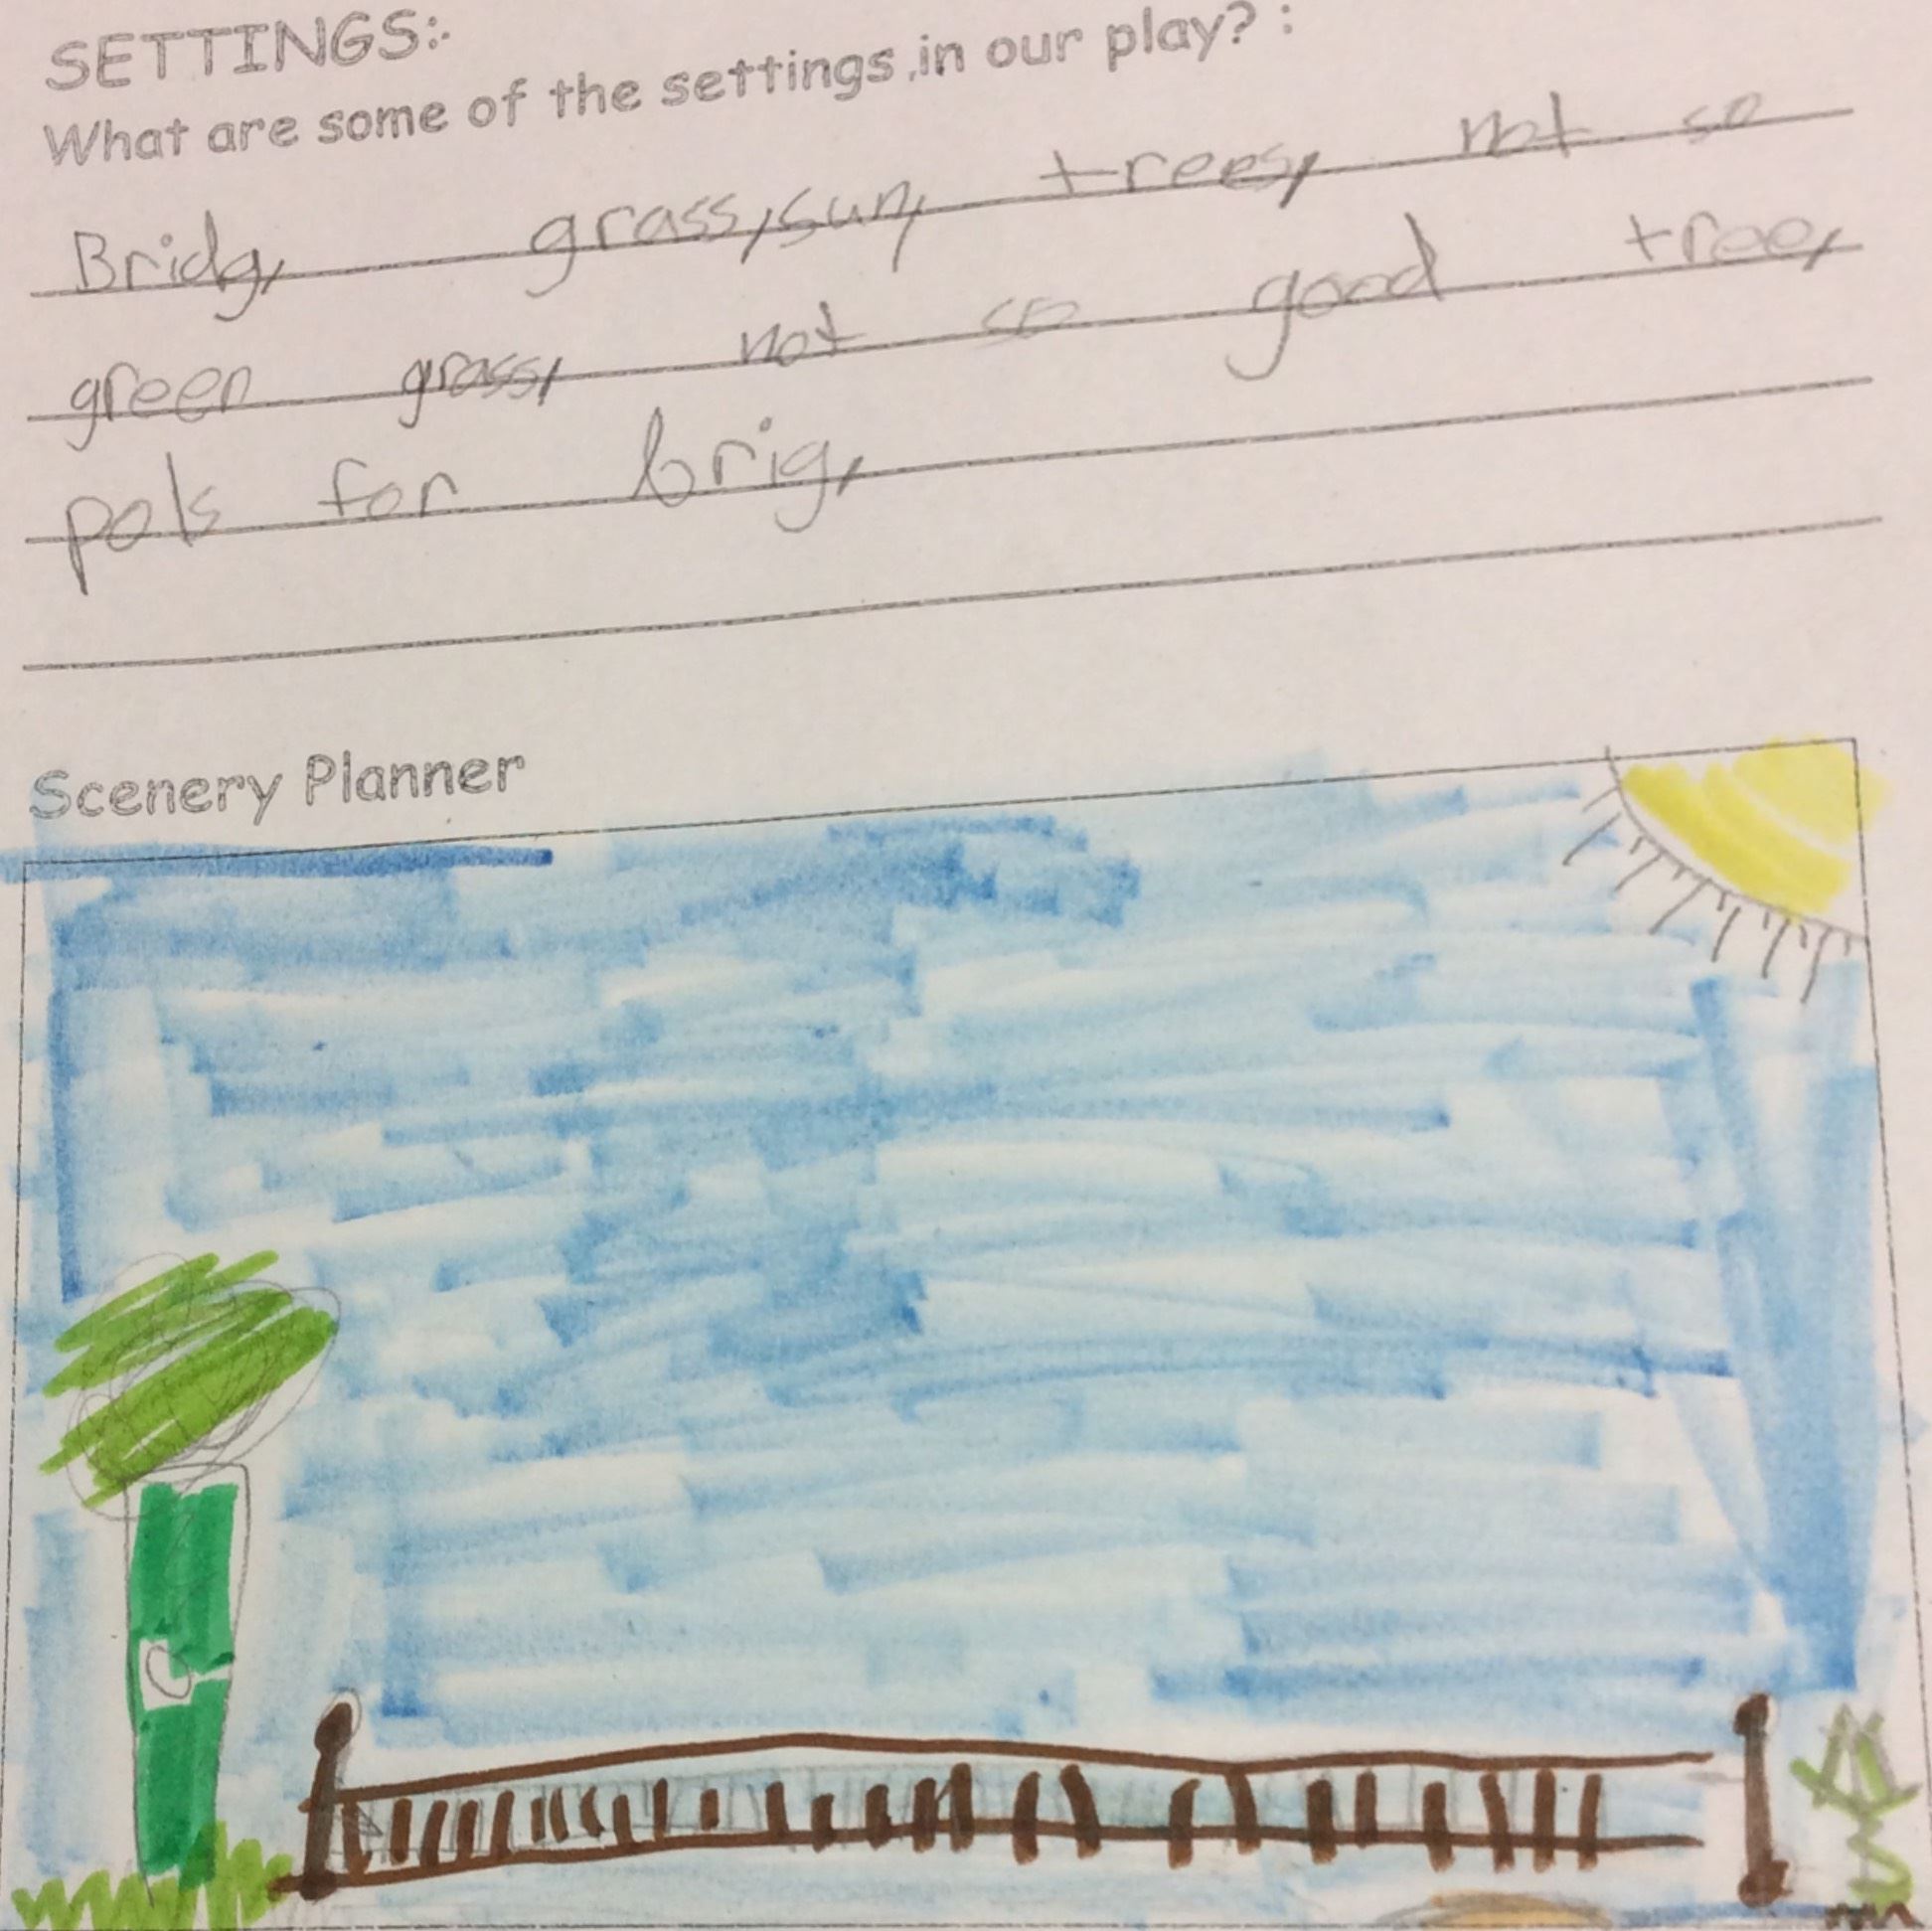 SETTINGS:-
What are some of the settings in our play? :
Bridg, grass, sun, trees, not so
green grass, not so good tree,
pols for brig,
Scenery Planner